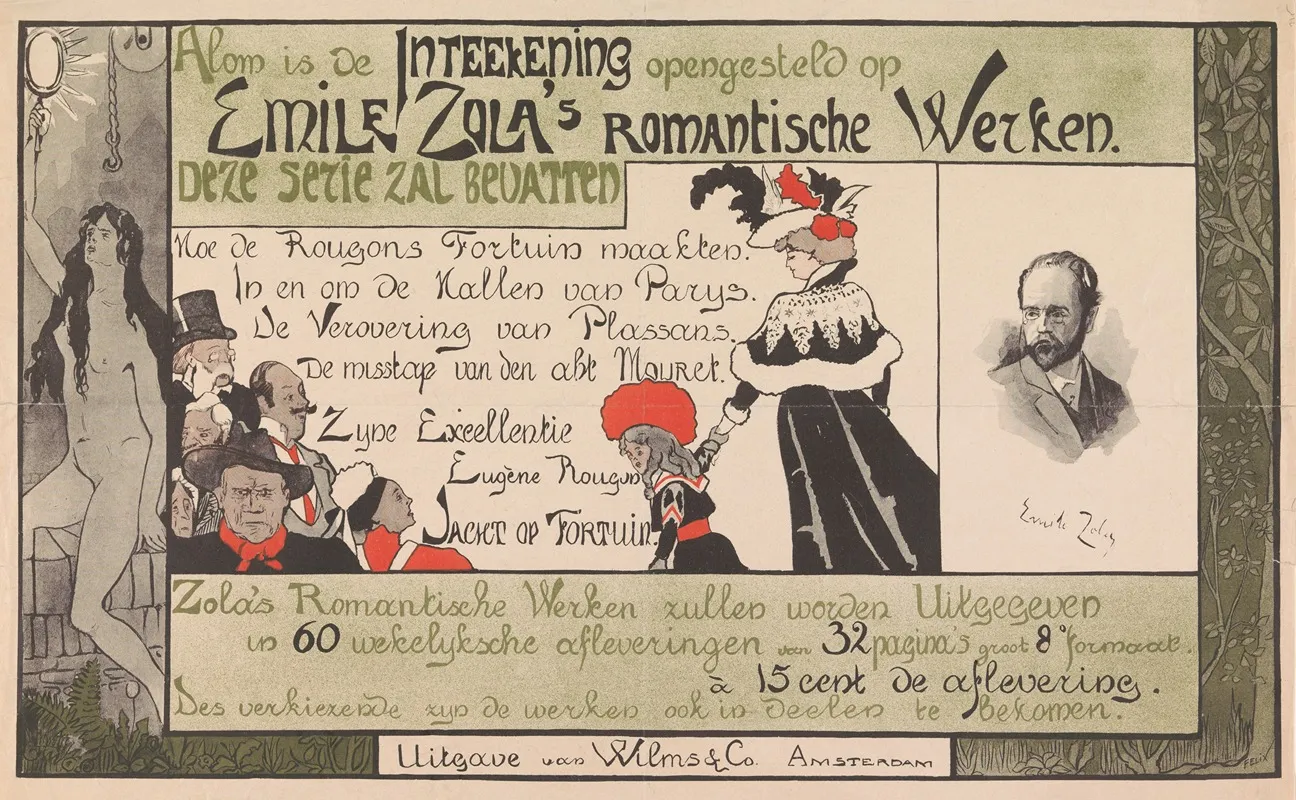 Alom is de INTEEKENING opengesteld op
EMILE ZOLA'S ROMANTISCHE WERKEN.
DEZE SERIE ZAL BEVATTEN
Hoe de Rougons Fortuin maakten.
In en om de Hallen van Parys.
De Verovering van Plassans.
De misstap van den abt Mouret.
Zyne Excellentie
Eugène Rougon
JACHT OP FORTUIN.
Emile Zola
Zola's Romantische Werken zullen worden Uitgegeven
in 60 wekelyksche afleveringen van 32 pagina's groot 8° formaat.
à 15 cent de aflevering.
Des verkiezende zyn de werken ook in deelen te Bekomen.
Uitgave van Wilms & Co. AMSTERDAM
FELIX